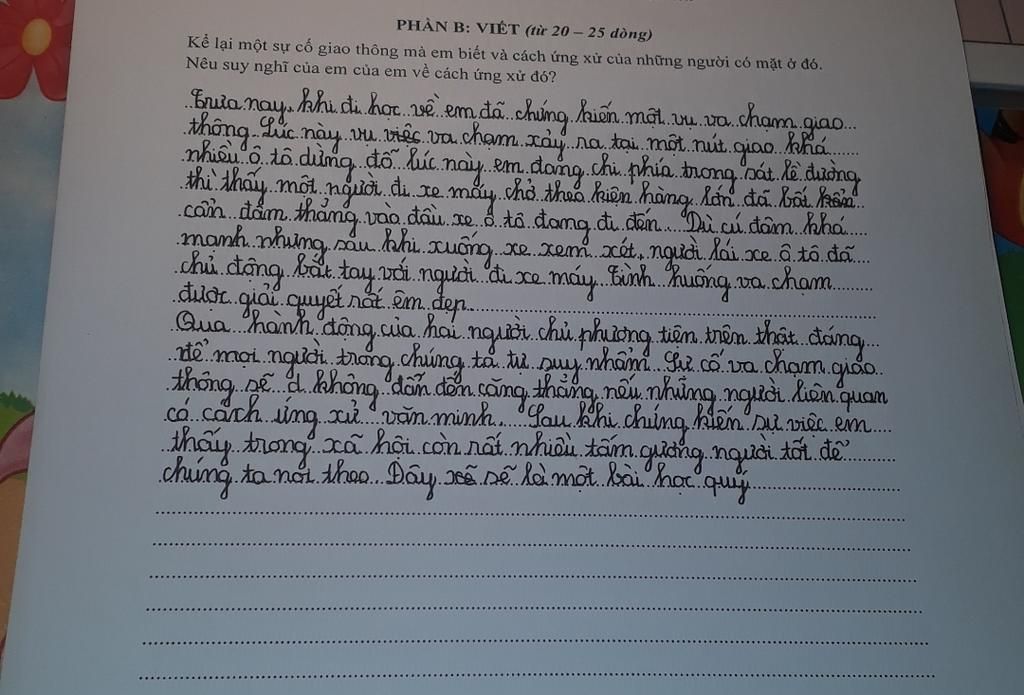 PHẦN B: VIẾT (từ 20 – 25 dòng)
Kể lại một sự cố giao thông mà em biết và cách ứng xử của những người có mặt ở đó.
Nêu suy nghĩ của em của em về cách ứng xử đó?
Trưa nay, khi đi học về em đã chứng kiến một vụ va chạm giao
thông. Lúc này vụ việc va chạm xảy ra tại một nút giao khá
nhiều ô tô dừng đỗ lúc này em đang chi phía trong sát lề đường
thì thấy một người đi xe máy chở theo kiện hàng lớn đã bất
cẩn đâm thẳng vào đầu xe ô tô đang đi đến. Dù cú đâm khá
mạnh nhưng sau khi xuống xe xem xét, người lái xe ô tô đã
chủ động bắt tay với người đi xe máy. Tình huống va chạm
được giải quyết rất êm đẹp.
Qua hành động của hai người chủ phương tiện trên thật đáng
để mọi người trong chúng ta tự suy nhẩm. Sự cố va chạm giao
thông sẽ d không dẫn đến căng thẳng nếu những người liên quan
có cách ứng xử văn minh. Sau khi chứng kiến sự việc em
thấy trong xã hội còn rất nhiều tấm gương người tốt để
chúng ta noi theo. Đây sẽ là một bài học quý